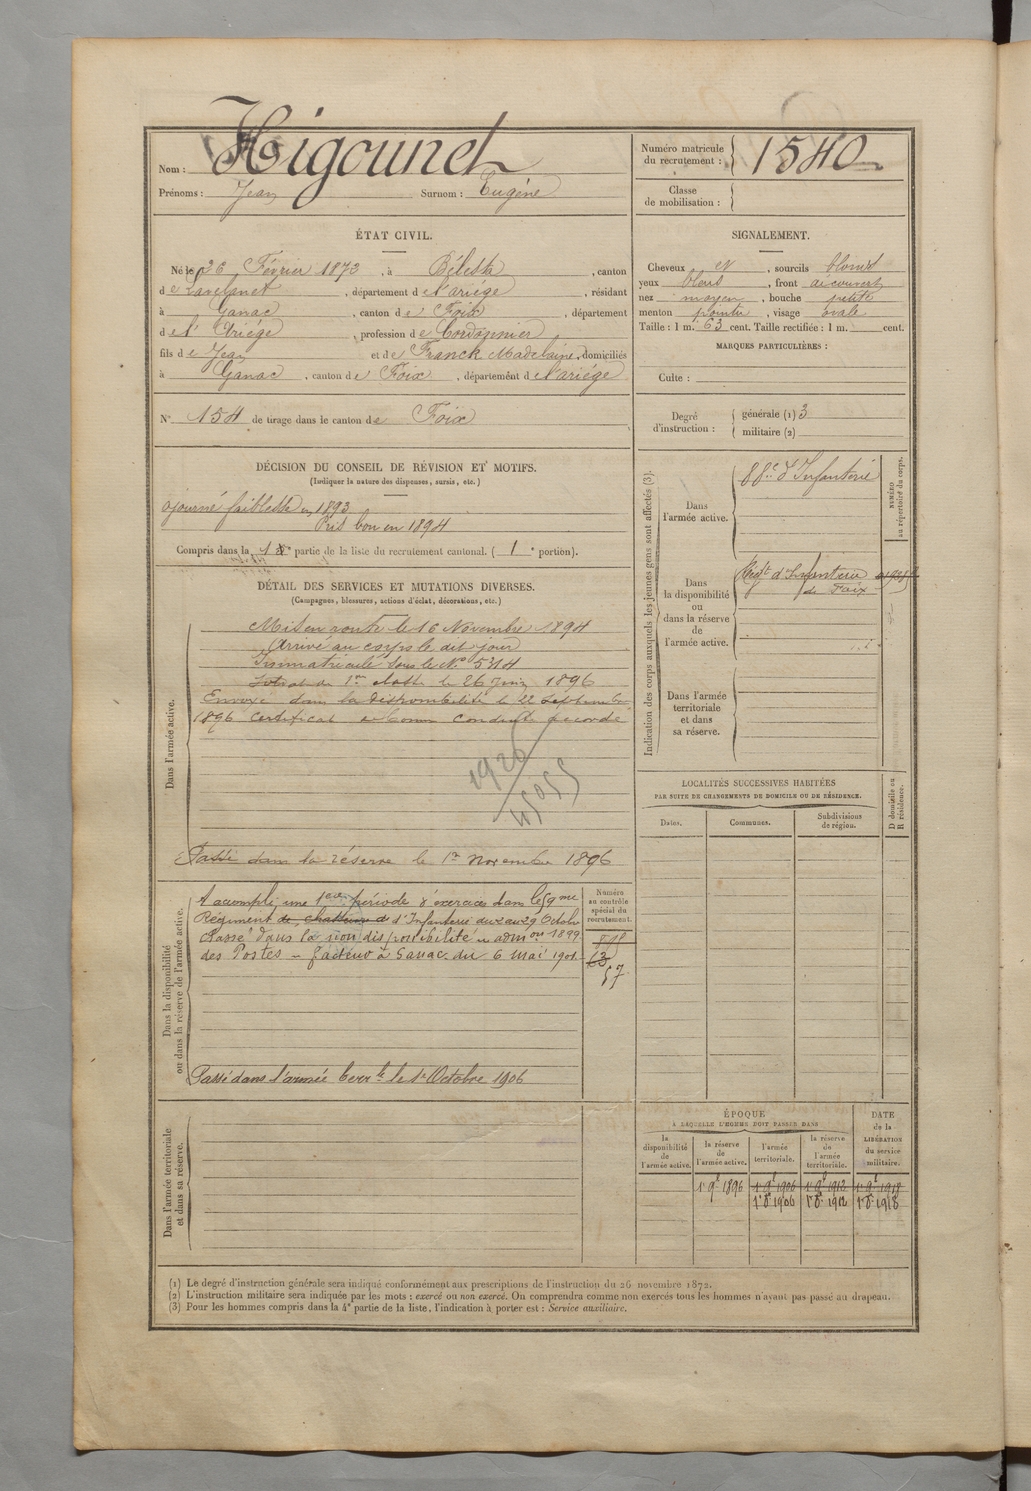 Nom : Higounet
Prénoms : Jean Surnom : Eugène
Numéro matricule du recrutement : 1540
Classe de mobilisation :
ÉTAT CIVIL.
Né le 26 Février 1873, à Bélesta, canton
de Lavelanet, département de l'ariége, résidant
à Ganac, canton de Foix, département
de l'Ariége, profession de Cordonnier
fils de Jean et de Franck Madelaine, domiciliés
à Ganac, canton de Foix, département de l'ariége
N° 154 de tirage dans le canton de Foix
SIGNALEMENT.
Cheveux et, sourcils blonds
yeux bleus, front découvert
nez moyen, bouche petite
menton pointu, visage ovale
Taille : 1 m. 63 cent. Taille rectifiée : 1 m. cent.
MARQUES PARTICULIÈRES :
Culte :
Degré d'instruction : générale (1) 3
militaire (2)
DÉCISION DU CONSEIL DE RÉVISION ET MOTIFS.
(Indiquer la nature des dispenses, sursis, etc.)
ajourné faiblesse en 1893
Pris bon en 1894
Compris dans la 1e partie de la liste du recrutement cantonal. (1e portion).
DÉTAIL DES SERVICES ET MUTATIONS DIVERSES.
(Campagnes, blessures, actions d'éclat, décorations, etc.)
Dans l'armée active.
Mis en route le 16 Novembre 1894
Arrivé au corps le dit jour
Immatriculé sous le N° 5314
Soldat de 1re classe le 26 Juin 1896
Envoyé dans la disponibilité le 22 Septembre
1896 Certificat de bonne conduite accordé
1926
Passé dans la réserve le 1er novembre 1896
Dans la disponibilité ou dans la réserve de l'armée active.
A accompli une 1ère période d'exercices dans le 59me
Régiment de chasseurs d d'Infanterie du 2 au 29 Octobre
1899
Classé dans la non disponibilité en admon
des Postes – facteur à Ganac du 6 mai 1901
Passé dans l'armée terrle le 1er Octobre 1906
Numéro au contrôle spécial du recrutement.
57
Dans l'armée territoriale et dans sa réserve.
Indication des corps auxquels les jeunes gens sont affectés (3).
NUMÉRO au répertoire du corps.
Dans l'armée active.
88e d'Infanterie
Dans la disponibilité ou dans la réserve de l'armée active.
Régt d'Infanterie
de Foix
Dans l'armée territoriale et dans sa réserve.
LOCALITÉS SUCCESSIVES HABITÉES
PAR SUITE DE CHANGEMENTS DE DOMICILE OU DE RÉSIDENCE.
Dates. Communes. Subdivisions de région. D domicile ou R résidence.
ÉPOQUE
À LAQUELLE L'HOMME DOIT PASSER DANS
la disponibilité de l'armée active. la réserve de l'armée active. l'armée territoriale. la réserve de l'armée territoriale.
DATE de la LIBÉRATION du service militaire.
1r 9e 1896 1r 9e 1906 1r 9e 1912 1r 9e 1918
1r 8e 1906 1r 8e 1912 1r 8e 1918
(1) Le degré d'instruction générale sera indiqué conformément aux prescriptions de l'instruction du 26 novembre 1872.
(2) L'instruction militaire sera indiquée par les mots : exercé ou non exercé. On comprendra comme non exercés tous les hommes n'ayant pas passé au drapeau.
(3) Pour les hommes compris dans la 4e partie de la liste, l'indication à porter est : Service auxiliaire.